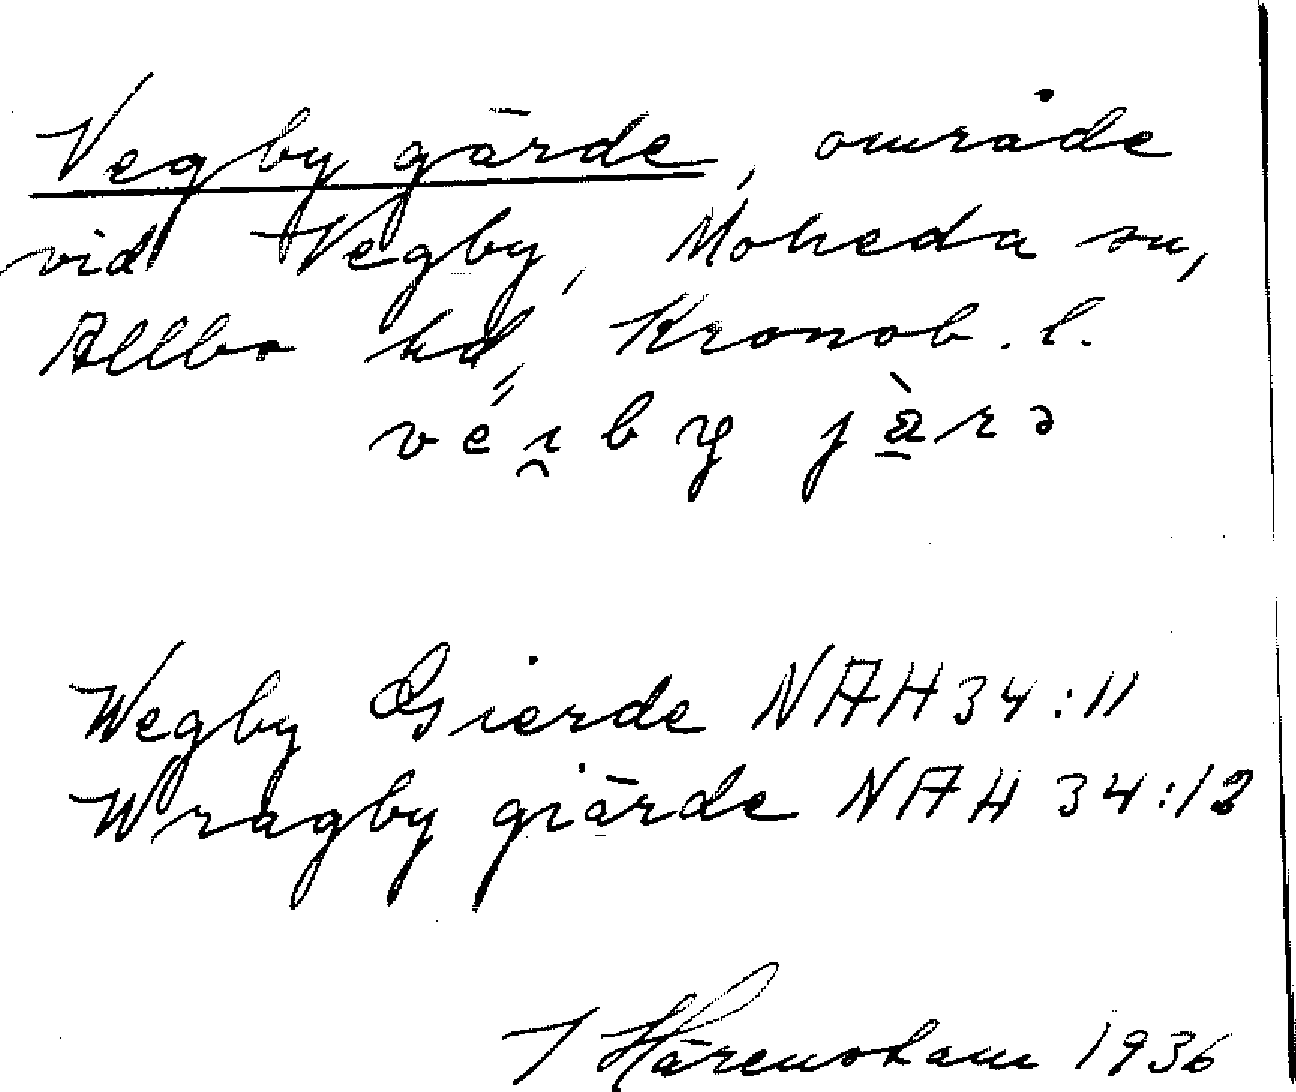 Vegby gärde, område
vid Vegby, Moheda sn,
Allbo hd, Kronob. l.
Wegby Gierde NAH 34:11
Wragby giärde NAH 34:12
1936